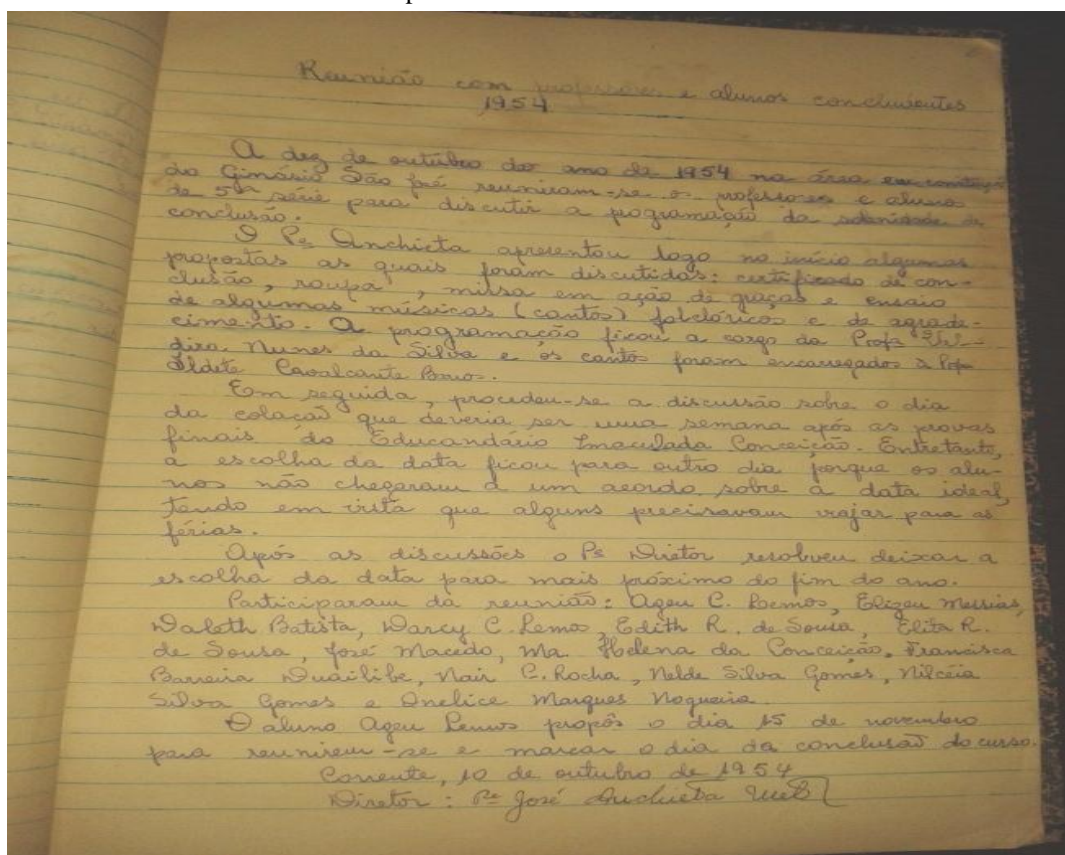 Reunião com professores e alunos concluientes
1954
A dez de outubro do ano de 1954 na área em construção
do Ginásio São José reuniram-se os professores e alunos
de 5ª série para discutir a programação da solenidade de
conclusão.
O Pe Anchieta apresentou logo no início algumas
propostas as quais foram discutidas: certificado de con-
clusão, roupa, missa em ação de graças e ensaio
de algumas músicas (cantos) folclóricos e de agrade-
cimento. A programação ficou a cargo da Profa
Nunes da Silva e os cantos foram encarregados a
Ildete Cavalcante
Em seguida, procedeu-se a discussão sobre o dia
da colação que deveria ser uma semana após as provas
finais do Educandário Imaculada Conceição. Entretanto,
a escolha da data ficou para outro dia porque os alu-
nos não chegaram a um acordo sobre a data ideal,
tendo em vista que alguns precisavam viajar para as
férias.
Após as discussões o Pe Diretor resolveu deixar a
escolha da data para mais próximo do fim do ano.
Participaram da reunião: Ageu C. Lemos, Elizeu Messias,
Daleth Batista, Darcy C. Lemos, Edith R. de Sousa, Elita R.
de Sousa, José Macedo, Ma Helena da Conceição, Francisca
Barreira Duailibe, Nair C. Rocha, Nelde Silva Gomes, Nilcéia
Silva Gomes e Onelice Marques Nogueira.
O aluno Ageu Lemos propôs o dia 15 de novembro
para reunirem-se e marcar o dia da conclusão do curso.
Corrente, 10 de outubro de 1954
Diretor: Pe José Anchieta